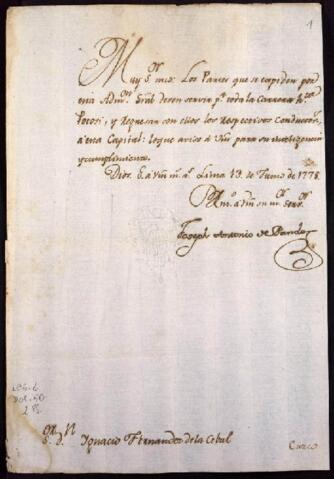 1
Muy S.or mio: Los Partes que se expiden por
esta Adm.on Gral deven servir p.a toda la Carrera h.ta
Potosi, y regresar con ellos los respectivos Conductores
á esta Capital: loque aviso á Vm para su inteligencia
y cumplimiento.
Dios G. a Vm m.s a.s Lima 19. de Junio de 1778.
Joseph Antonio de Pando
S.r D.n Ignacio Fernandez de la Cebal
Cuzco